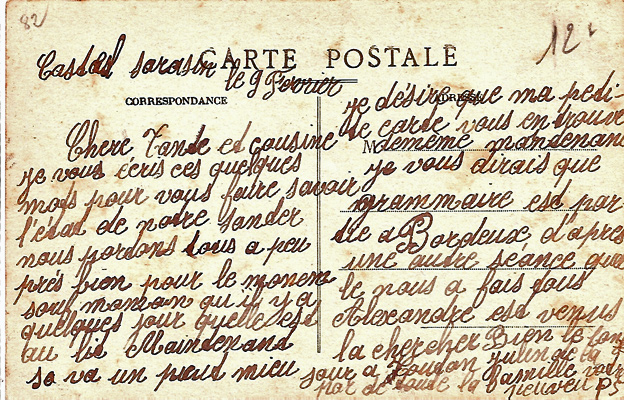 82
12
CARTE POSTALE
Castel sarasin le 9 Fevrier
CORRESPONDANCE
Chere Tante et cousine
je vous écris ces quelques
mots pour vous faire savoir
l'état de notre santer
nous portons tous a peu
près bien pour le moment
souf maman qu'il y a
quelques jour quelle est
au lit Maintenand
sa va un peut mieu
je désire que ma peti
te carte vous en trouve
M
dememe mantenant
je vous dirais que
grammaire est par
tie a Bordeux d'apres
une autre séance que
le nous a fais tous
Alexandre est venus
la chercher Bien le bon
jour a
par de toute la famille votre